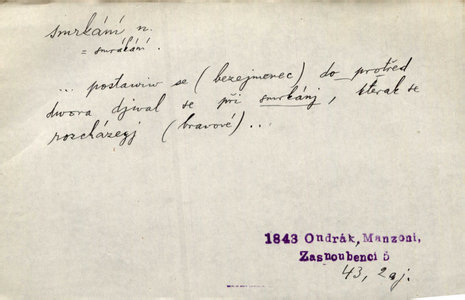 smrkání n.
= smrákání.
... postawiw se (bezejmenec) do protřed
dwora djwal se při smrkánj, kterak se
rozcházegj (bravové)...
1843 Ondrák, Manzoni,
Zasnoubenci 5
43, 2aj.